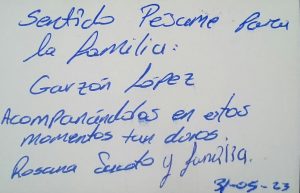 Sentido Pésame para
la familia:
Garzón López
Acompañándolos en estos
momentos tan duros.
Rosana y familia.
31-05-23